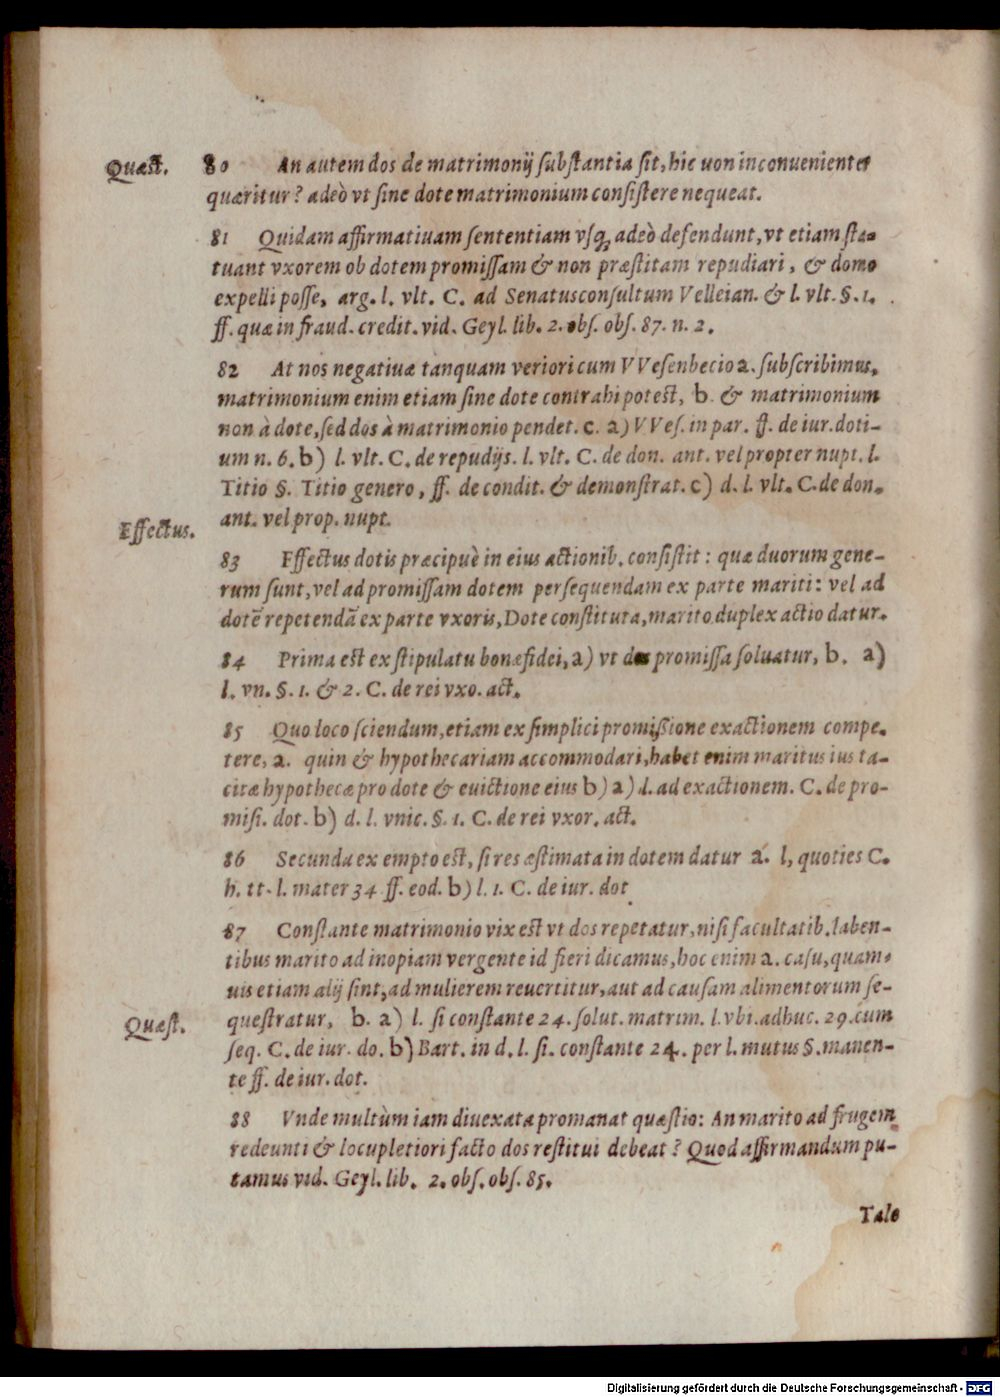 Quæst. 80 An autem dos de matrimonij ſubſtantia ſit, hic uon inconuenienter
quæritur? adeò vt ſine dote matrimonium conſiſtere nequeat.
81 Quidam affirmatiuam ſententiam vſq́; adeò defendunt, vt etiam ſta-
tuant vxorem ob dotem promiſſam & non præſtitam repudiari, & domo
expelli poſſe, arg. l. vlt. C. ad Senatusconſultum Velleian. & l. vlt. §. 1.
ff. quæ in fraud. credit. vid. Geyl. lib. 2. obſ. obſ. 87. n. 2.
82 At nos negatiuæ tanquam veriori cum VVeſenbecio a. ſubſcribimus,
matrimonium enim etiam ſine dote contrahi poteſt, b. & matrimonium
non à dote, ſed dos à matrimonio pendet. c. a) VVeſ. in par. ff. de iur. doti-
um n. 6. b) l. vlt. C. de repudijs. l. vlt. C. de don. ant. vel propter nupt. l.
Titio §. Titio genero, ff. de condit. & demonſtrat. c) d. l. vlt. C. de don.
ant. vel prop. nupt.
Effectus.
83 Effectus dotis præcipuè in eius actionib. conſiſtit: quæ duorum gene-
rum ſunt, vel ad promiſſam dotem perſequendam ex parte mariti: vel ad
dotē repetendā ex parte vxoris, Dote conſtituta, marito duplex actio datur.
84 Prima eſt ex ſtipulatu bonæ fidei, a) vt dos promiſſa ſoluatur, b. a)
l. vn. §. 1. & 2. C. de rei vxo. act.
85 Quo loco ſciendum, etiam ex ſimplici promiſsione exactionem compe-
tere, a. quin & hypothecariam accommodari, habet enim maritus ius ta-
citæ hypothecæ pro dote & euictione eius b) a) l. ad exactionem. C. de pro-
miſi. dot. b) d. l. vnic. §. 1. C. de rei vxor. act.
86 Secunda ex empto eſt, ſi res æſtimata in dotem datur a. l, quoties C.
h. tt. l. mater 34 ff. eod. b) l. 1. C. de iur. dot.
87 Conſtante matrimonio vix eſt vt dos repetatur, niſi facultatib. laben-
tibus marito ad inopiam vergente id fieri dicamus, hoc enim a. caſu, quam-
uis etiam alij ſint, ad mulierem reuertitur, aut ad cauſam alimentorum ſe-
Quæſt. queſtratur, b. a) l. ſi conſtante 24. ſolut. matrim. l. vbi. adhuc. 29. cum
ſeq. C. de iur. do. b) Bart. in d. l. ſi. conſtante 24. per l. mutus §. manen-
te ff. de iur. dot.
88 Vnde multùm iam diuexata promanat quæſtio: An marito ad frugem
redeunti & locupletiori facto dos reſtitui debeat? Quod affirmandum pu-
tamus vid. Geyl. lib. 2. obſ. obſ. 85.
Tale
Digitalisierung gefördert durch die Deutsche Forschungsgemeinschaft - DFG